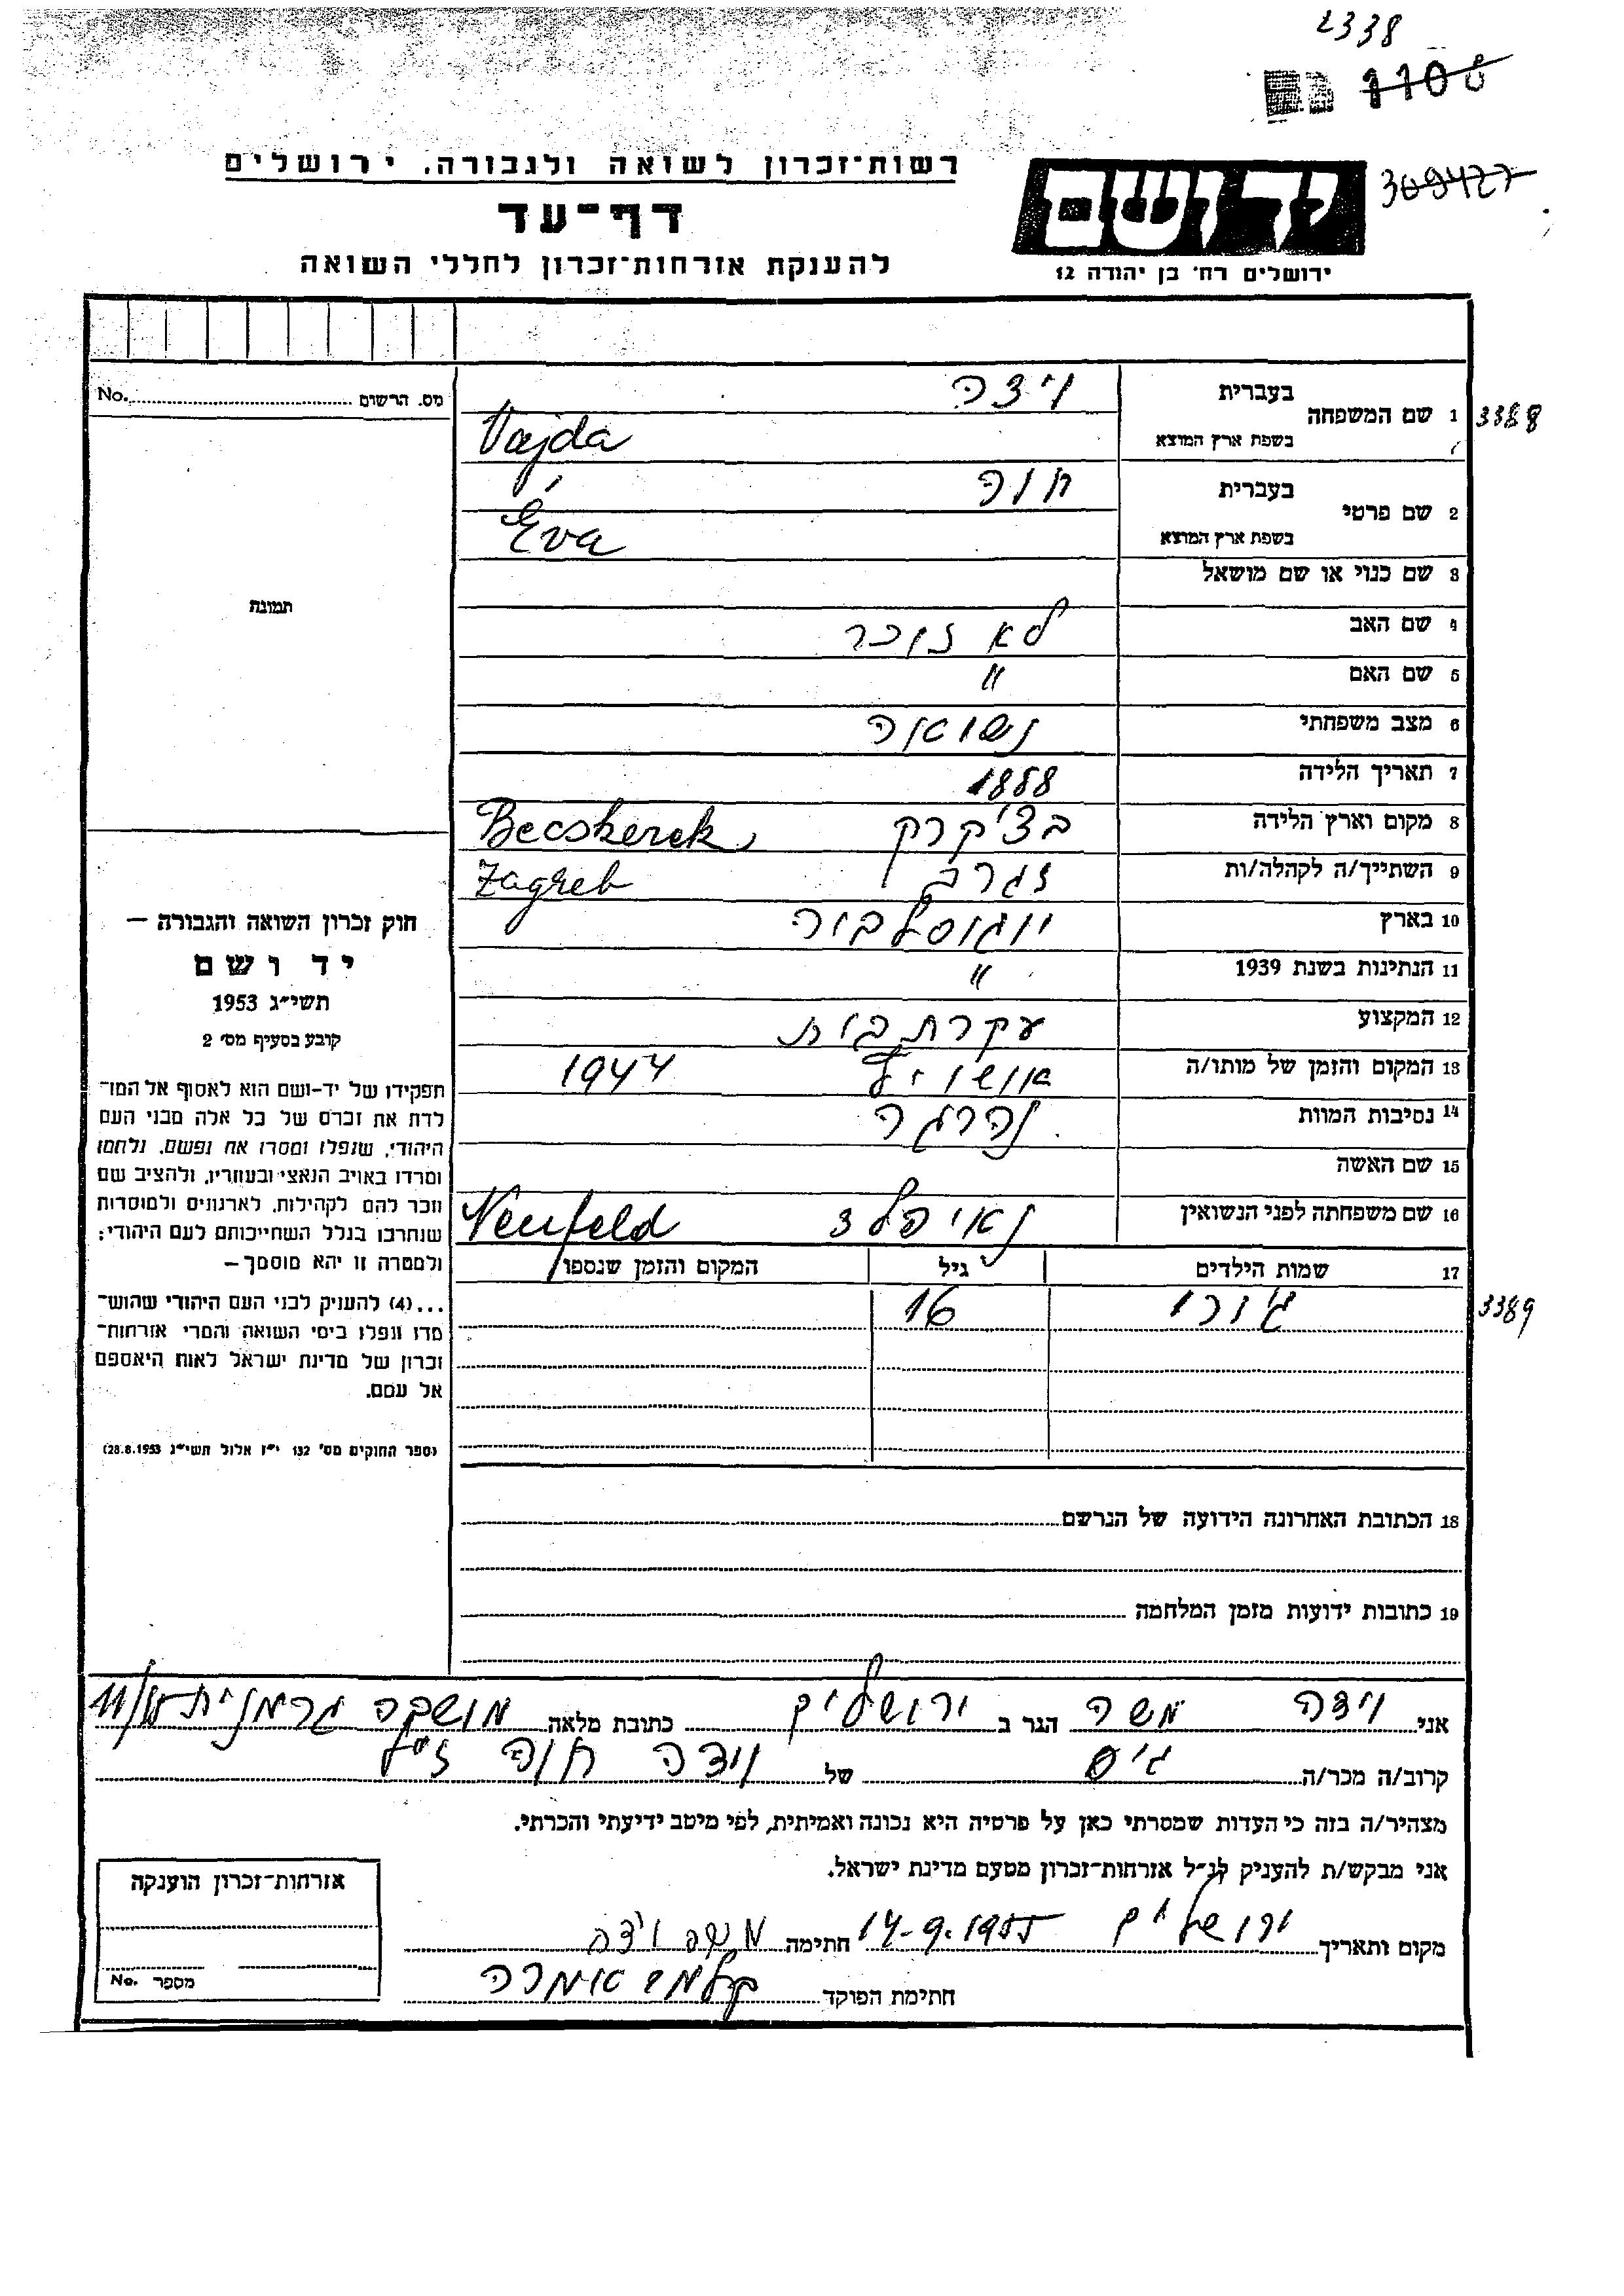 2338
1108
רשות-זכרון לשואה ולגבורה, ירושלים
309427
דף-עד
יד ושם
להענקת אזרחות-זכרון לחללי השואה
ירושלים רח' בן יהודה 12
מס. הרשום No.
1 שם המשפחה בעברית וידה
3388
בשפת ארץ המוצא Vajda
2 שם פרטי בעברית חוה
בשפת ארץ המוצא Éva
3 שם כנוי או שם מושאל
תמונה
4 שם האב לא זוכר
5 שם האם "
6 מצב משפחתי נשואה
7 תאריך הלידה 1888
8 מקום וארץ הלידה בצ'קרק Becskerek
9 השתייך/ה לקהלה/ות זגרב Zagreb
10 בארץ יוגוסלביה
11 הנתינות בשנת 1939 "
12 המקצוע עקרת בית
13 המקום והזמן של מותו/ה אושויץ 1944
14 נסיבות המוות נהרגה
15 שם האשה
16 שם משפחתה לפני הנשואין נאיפלד Neufeld
17 שמות הילדים גיל המקום והזמן שנספו
ג'ורי 16
3389
חוק זכרון השואה והגבורה –
יד ושם
תשי"ג 1953
קובע בסעיף מס' 2
תפקידו של יד-ושם הוא לאסוף אל המו-
לדת את זכרם של כל אלה מבני העם
היהודי, שנפלו ומסרו את נפשם, נלחמו
ומרדו באויב הנאצי ובעוזריו, ולהציב שם
וזכר להם לקהילות, לארגונים ולמוסדות
שנחרבו בגלל השתייכותם לעם היהודי;
ולמטרה זו יהא מוסמך –
...(4) להעניק לבני העם היהודי שהוש-
מדו ונפלו בימי השואה והמרי אזרחות-
זכרון של מדינת ישראל לאות היאספם
אל עמם.
(ספר החוקים מס' 132 י"ז אלול תשי"ג 28.8.1953)
18 הכתובת האחרונה הידועה של הנרשם
19 כתובות ידועות מזמן המלחמה
אני וידה משה הגר ב ירושלים כתובת מלאה מושבה גרמנית
קרוב/ה מכר/ה גיס של וידה חוה ז"ל
מצהיר/ה בזה כי העדות שמסרתי כאן על פרטיה היא נכונה ואמיתית, לפי מיטב ידיעתי והכרתי.
אני מבקש/ת להעניק לנ"ל אזרחות-זכרון מטעם מדינת ישראל.
אזרחות-זכרון הוענקה
מקום ותאריך ירושלים 14-9.1955 חתימה משה וידה
מספר No.
חתימת הפוקד קלמי אימרה